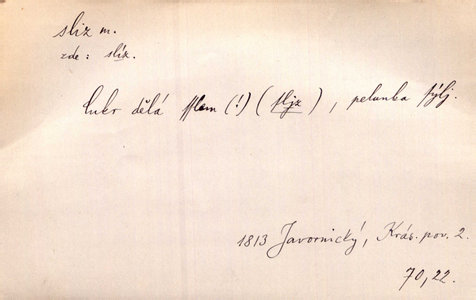 sliz m.
zde: slíz.
Cukr dělá fflem (!) (sljz), pelunka sýlj.
1813 Javornický, Krás. pov. 2.
70, 22.